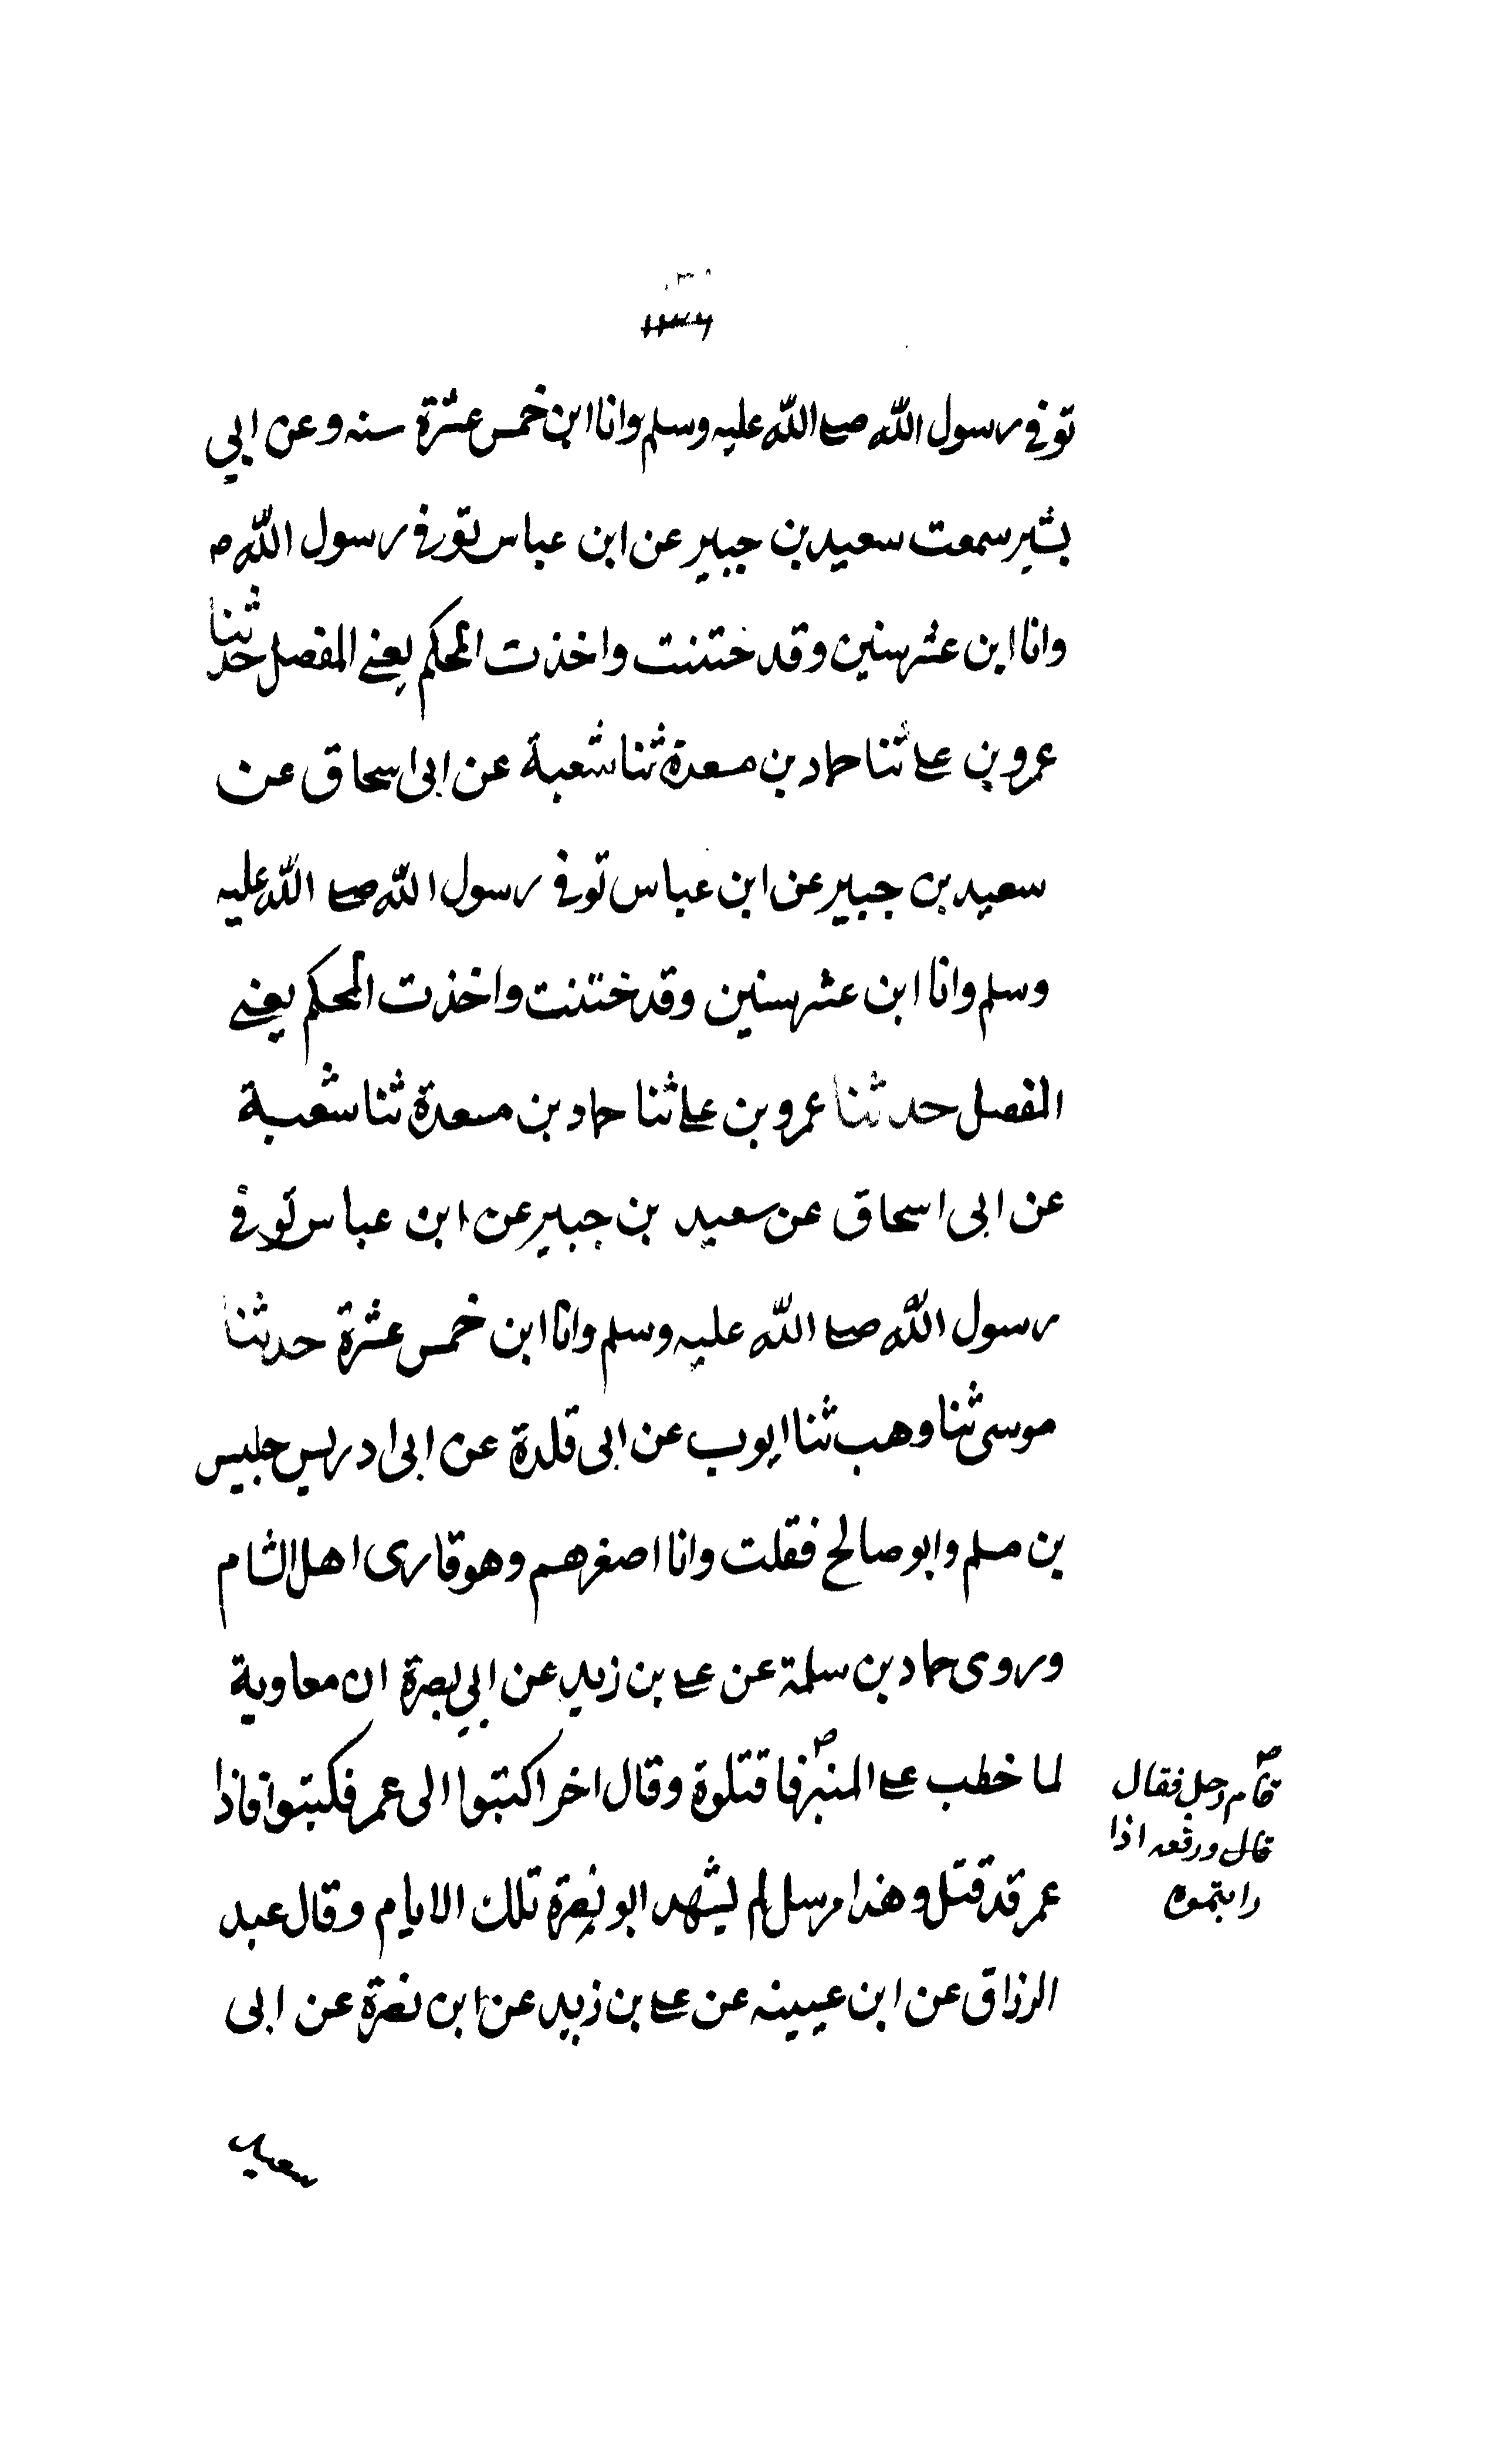 توفى رسول الله صلى الله عليه وسلم وانا ابن خمس عشرة سنه وعن ابي
بشير سمعت سعيد بن جبير عن ابن عباس توفى رسول الله ص
وانا ابن عشر سنين وقد ختنت واخذت المحكم يعنى المفصل حدثنا
عمرو بن على ثنا حماد بن مسعدة ثنا شعبة عن ابى اسحاق عن
سعيد بن جبير عن ابن عباس توفى رسول الله صلى الله عليه
وسلم وانا ابن عشر سنين وقد ختنت واخذت المحكم يعنى
المفصل حدثنا عمرو بن على ثنا حماد بن مسعدة ثنا شعبة
عن ابى اسحاق عن سعيد بن جبير عن ابن عباس توفى
رسول الله صلى الله عليه وسلم وانا ابن خمس عشرة حدثنا
موسى ثنا وهب ثنا ايوب عن ابى قلدة عن ابى ادريس جليس
بن مسلم وابو صالح فقلت وانا اصغرهم وهو قارى اهل الشام
وروى حماد بن سلمة عن على بن زيد عن ابي بصرة ان معاوية
لما خطب على المنبر فاقتلوة وقال اخر اكتبوا الى عمر فكتبوا فاذا
عمر قد قتل وهذا مرسل لم يشهد ابو نضرة تلك الايام وقال عبد
الرزاق عن ابن عيينه عن على بن زيد عن ابن نضرة عن ابى
سعيد
ص
قام رجل فقال
قال ورفعه اذا
رايتموه